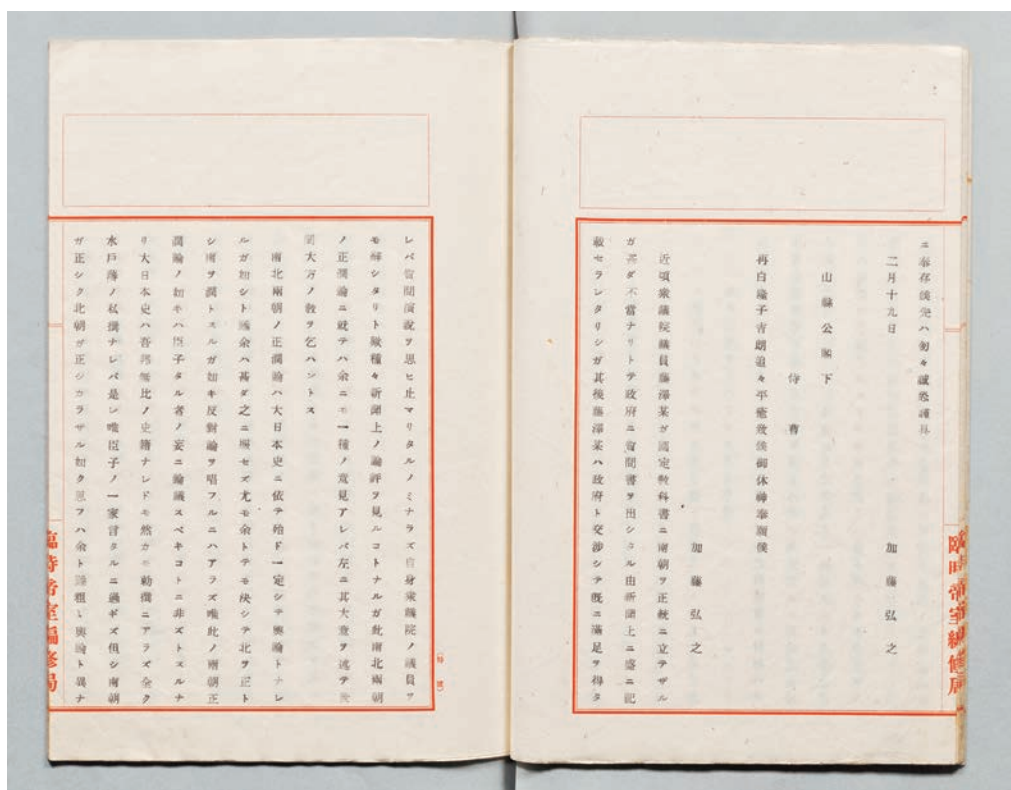 ニ奉存候先ハ匆々誠恐謹拜
二月十九日 加藤弘之
山縣公閣下
侍曹
再白瑞子吉朗追々平癒致候御休神奉願候
加藤弘之
近頃衆議院議員藤澤某ガ國定敎科書ニ南朝ヲ正統ニ立テザル
ガ甚ダ不當ナリトテ政府ニ質問書ヲ出シタル由新聞上ニ盛ニ記
載セラレタリシガ其後藤澤某ハ政府ト交渉シテ既ニ滿足ヲ得タ
臨時帝室編修局
レバ質問演説ヲ思ヒ止マリタルノミナラズ自身衆議院ノ議員ヲ
モ辭シタリト歟種々新聞上ノ論評ヲ見ルコトナルガ此南北兩朝
ノ正閏論ニ就テハ余ニモ一種ノ意見アレバ左ニ其大意ヲ述テ世
間大方ノ敎ヲ乞ハントス
南北兩朝ノ正閏論ハ大日本史ニ依テ殆ド一定シテ輿論トナレ
ルガ如シト雖余ハ甚ダ之ニ服セズ尤モ余トテモ決シテ北ヲ正ト
シ南ヲ閏トスルガ如キ反對論ヲ唱フルニハアラズ唯此ノ兩朝正
閏論ノ如キハ臣子タル者ノ妄ニ論議スベキコトニ非ズトスルナ
リ大日本史ハ吾邦無比ノ史籍ナレドモ然カモ勅撰ニアラズ全ク
水戸藩ノ私撰ナレバ是レ唯臣子ノ一家言タルニ過ギズ但シ南朝
ガ正シク北朝ガ正シカラザル如ク思フハ余ト雖粗ゝ輿論ト異ナ
臨時帝室編修局